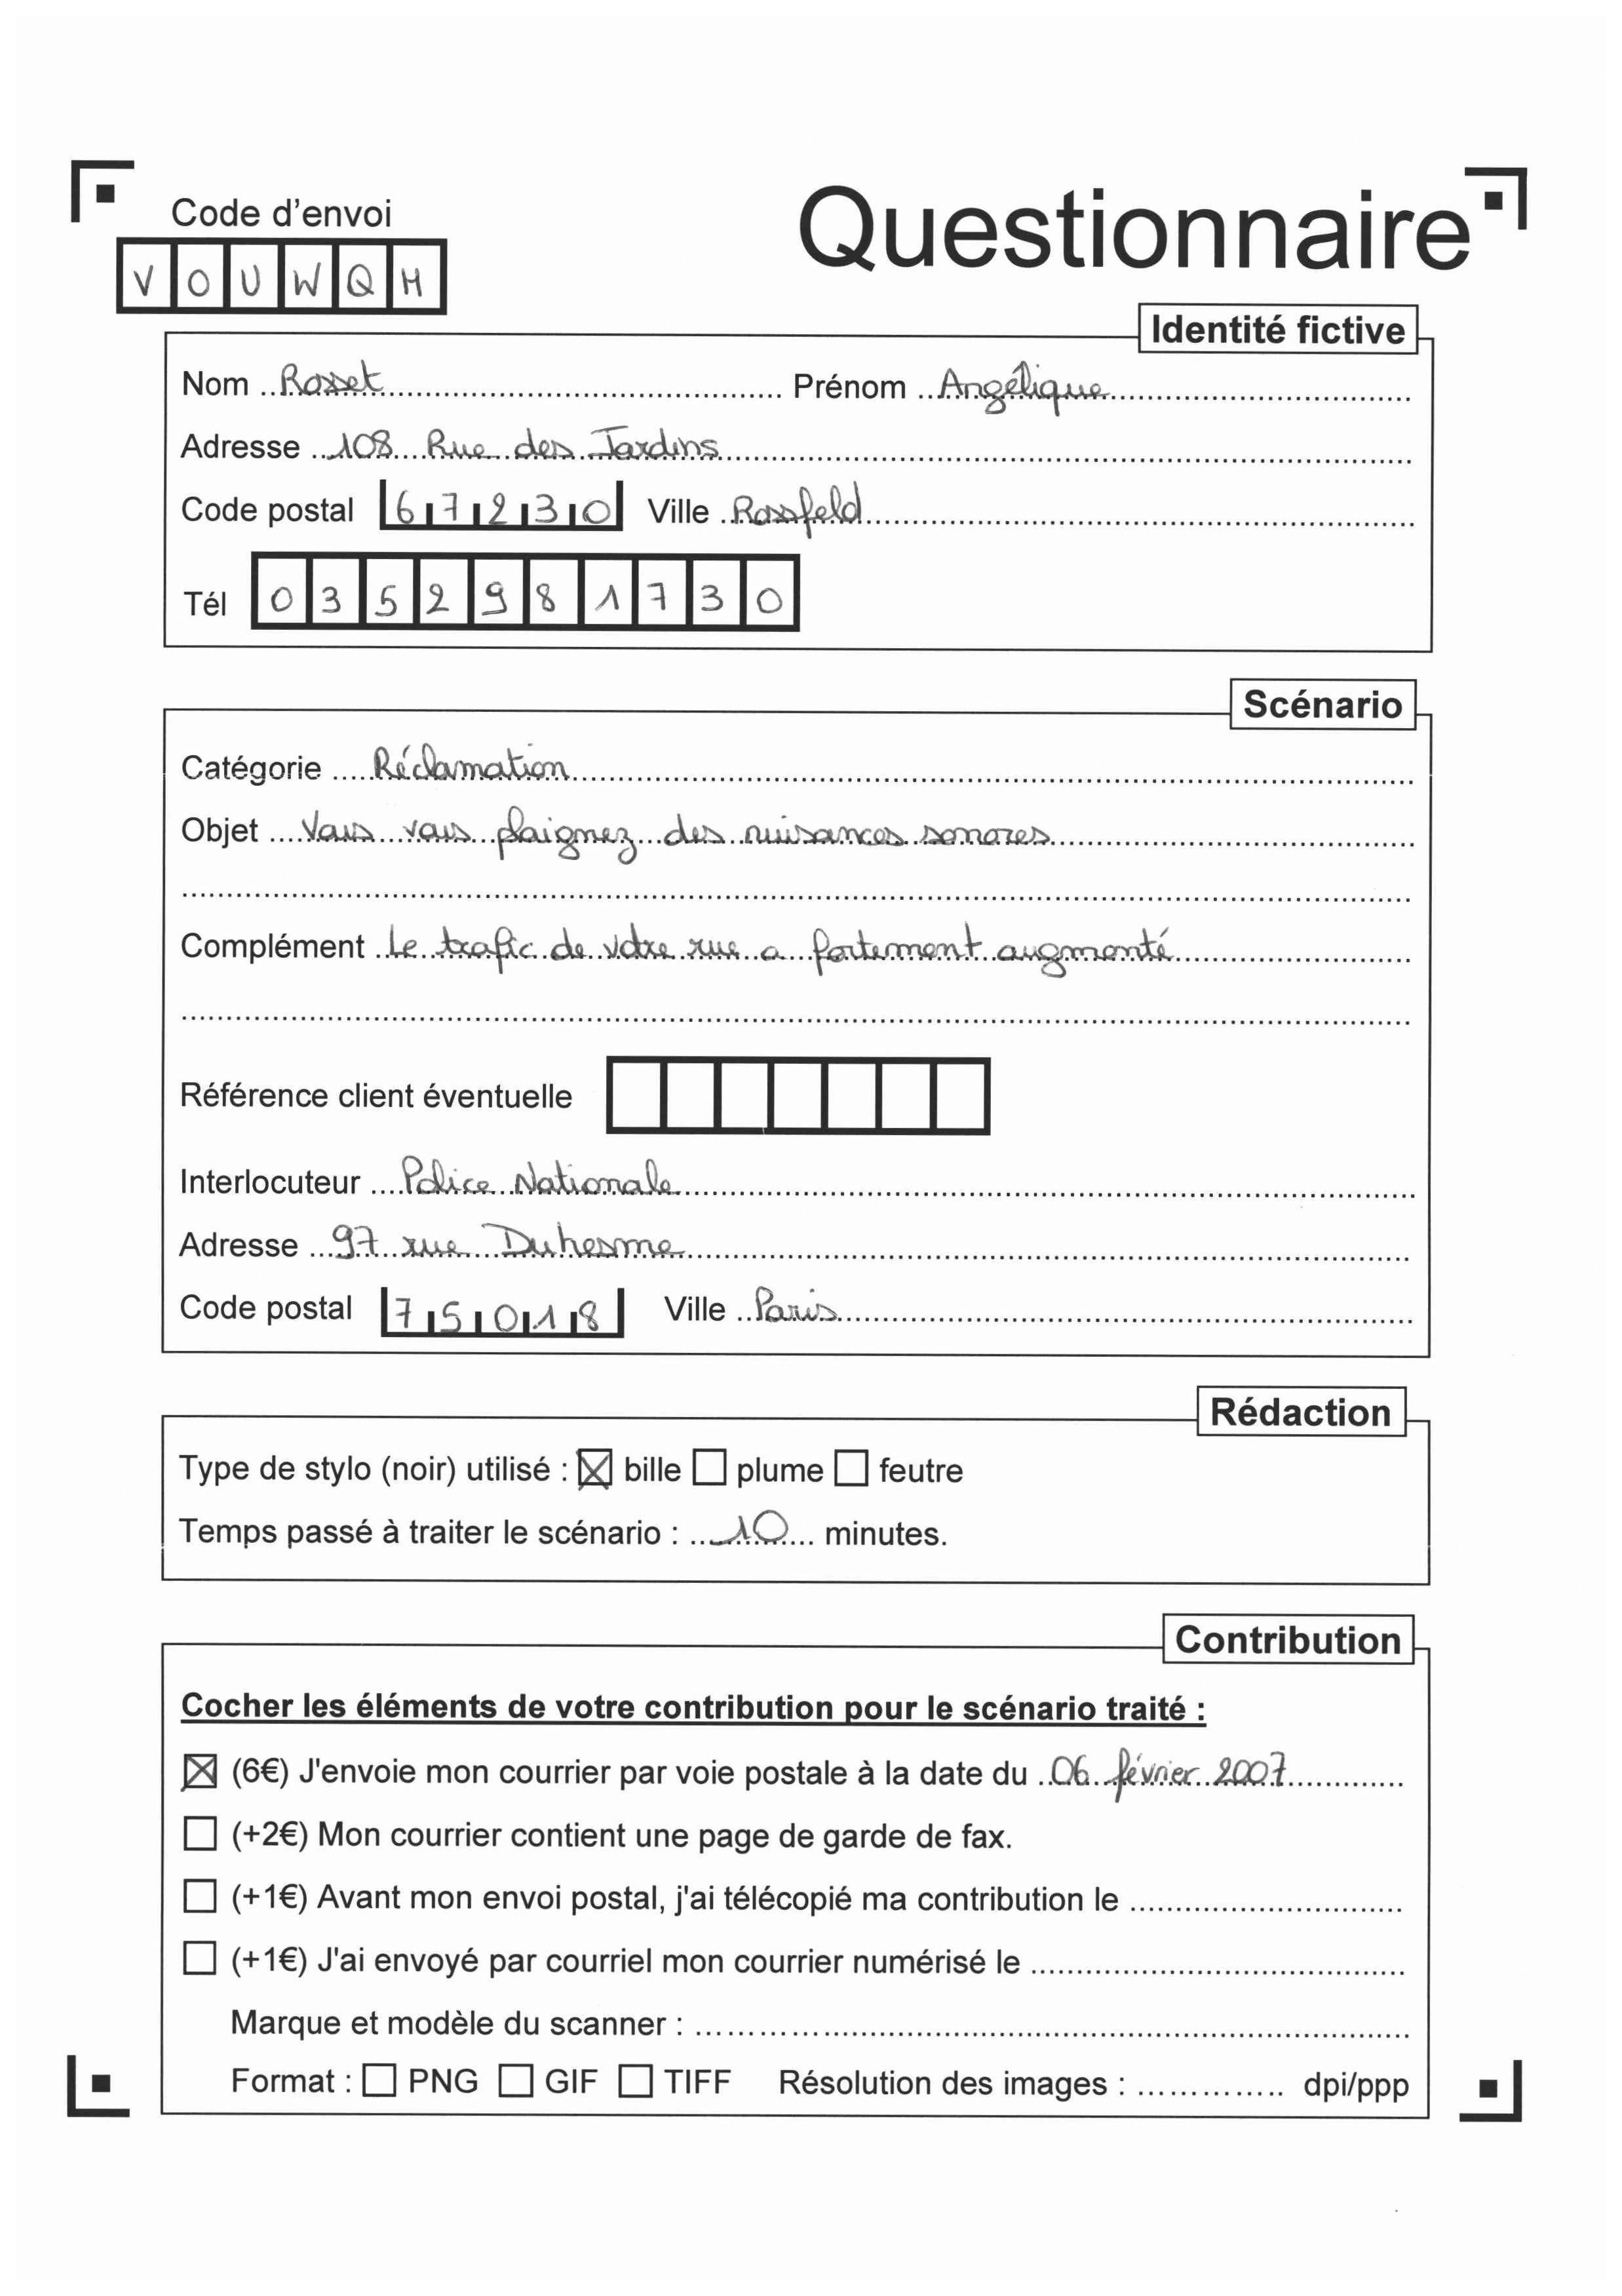 Code d'envoi
Questionnaire
V O U W Q H
Identité fictive
Nom Rosset Prénom Angélique
Adresse 108 Rue des Jardins
Code postal 67230 Ville Rossfeld
Tél 0352981730
Scénario
Catégorie Réclamation
Objet Vous vous plaignez des nuisances sonores
Complément Le trafic de votre rue a fortement augmenté
Référence client éventuelle
Interlocuteur Police Nationale
Adresse 97 rue Duhesme
Code postal 75018 Ville Paris
Rédaction
Type de stylo (noir) utilisé : ☒ bille ☐ plume ☐ feutre
Temps passé à traiter le scénario : 10 minutes.
Contribution
Cocher les éléments de votre contribution pour le scénario traité :
☒ (6€) J'envoie mon courrier par voie postale à la date du 06 février 2007
☐ (+2€) Mon courrier contient une page de garde de fax.
☐ (+1€) Avant mon envoi postal, j'ai télécopié ma contribution le
☐ (+1€) J'ai envoyé par courriel mon courrier numérisé le
Marque et modèle du scanner :
Format : ☐ PNG ☐ GIF ☐ TIFF Résolution des images : dpi/ppp